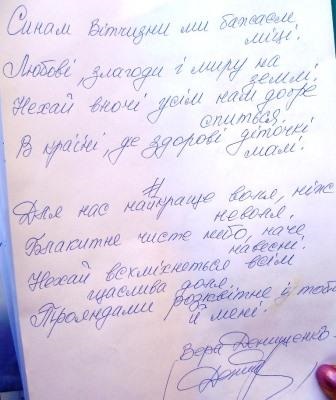 Синам Вітчизни ми бажаєм
міці.
Любові, злагоди і миру на
землі.
Нехай вночі усім нам добре
спиться.
В країні, де здорові діточкі
мамі.
#
Для нас найкраще воля, ніж
неволя.
Блакитне чисте небо, наче
навесні.
Нехай всхміхнеться всім
щаслива доля.
Трояндами розквітне і тобі
й мені.
Вера Денищенко